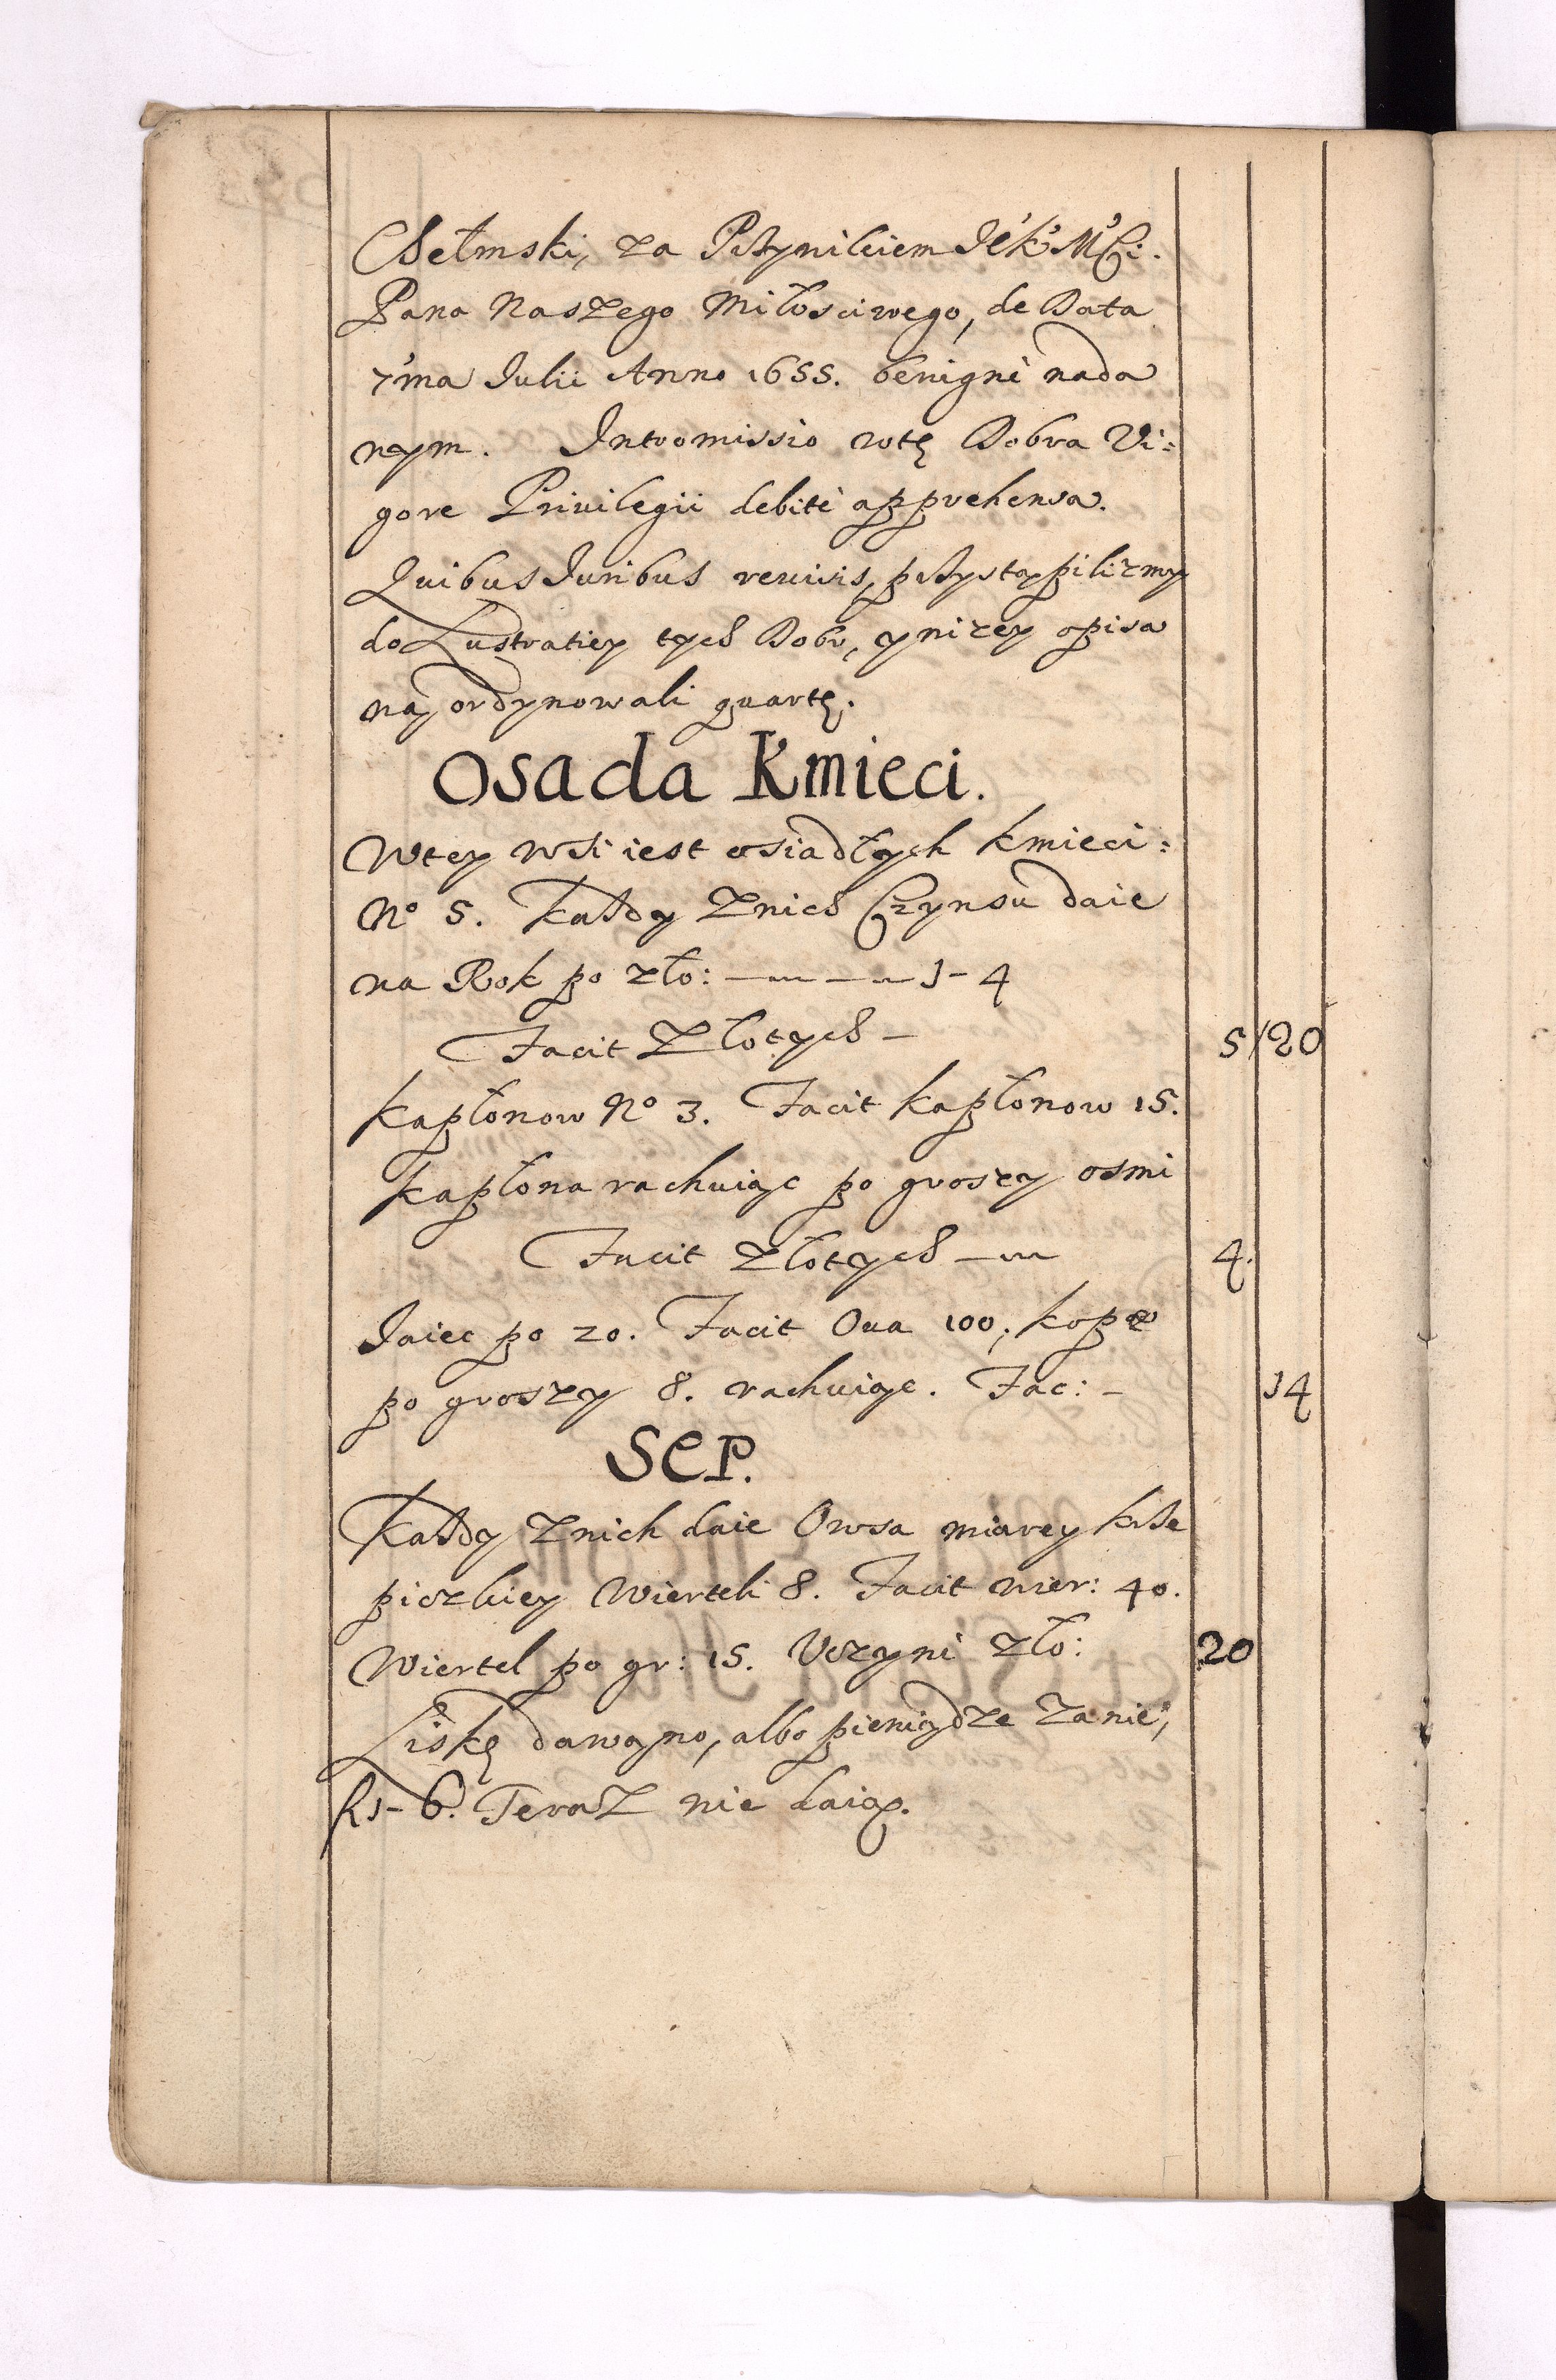 Chełmski, za Przywileiem JeK Mći.
Pana Naszego Miłosciwego, de Data
7ma Julii Anno 1655. benignè nada
nym. Intromissio wtę Dobra Vi:
gore Privilegii debitè apprehensa.
Quibus Juribus revisis, przystąpilizmy
do Lustratiey tych Dobr, y nizey opisa
ną ordynowali quartę.
Osada Kmieci.
Wtey wsi iest osiadłych kmieci:
No 5. Kazdy Znich Czynsu daie
na Rok po zło: 1-4
Facit Złotych 5/20
Kapłonow No 3. Facit kapłonow 15.
Kapłona rachuiąc po groszy osmi
Facit Złotych 4.
Jaiec po 20. Facit Oua 100, kopę
po groszy 8. rachuiąc. Fac: 14
SEP.
Kazdy Znich daie Owsa miarey krze
piczkiey Wierteli 8. Facit wier: 40.
Wiertel po gr: 15. Uczyni Zło: 20
Liskę dawano, albo pieniądze Zanię,
fl 1-6. Teraz nie daią.